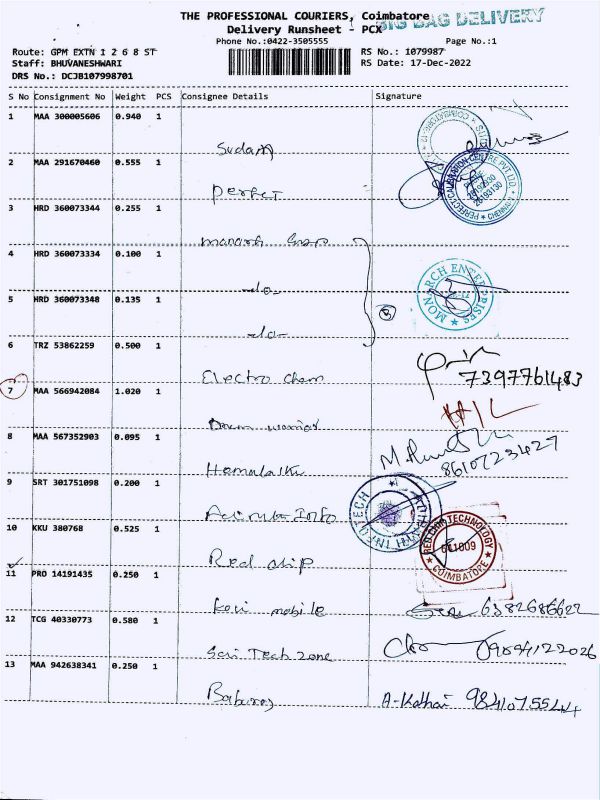 THE PROFESSIONAL COURIERS, Coimbatore
BIG BAG DELIVERY
Delivery Runsheet - PCX
Phone No.:0422-3505555 Page No.:1
Route: GPM EXTN 1 2 6 8 ST RS No.: 1079987
Staff: BHUVANESHWARI RS Date: 17-Dec-2022
DRS No.: DCJB107998701
S No Consignment No Weight PCS Consignee Details Signature
1 MAA 300005606 0.940 1
Sudam
2 MAA 291670460 0.555 1
Perfect
PERFECT CALIBRATION CENTRE PVT LTD. CHENNAI
3 HRD 360073344 0.255 1
4 HRD 360073334 0.100 1
-do-
MONARCH ENTERPRISES
5 HRD 360073348 0.135 1
-do-
6 TRZ 53862259 0.500 1
Electro chem
7397761483
7 MAA 566942084 1.020 1
H/L
8 MAA 567352903 0.095 1
Hemalatha
8610723427
9 SRT 301751098 0.200 1
Info
INFOTECH
10 KKU 380768 0.525 1
Red chip
RED CHIP TECHNOLOGY
641009
COIMBATORE
11 PRO 14191435 0.250 1
Kovi mobile
6382686622
12 TCG 40330773 0.580 1
Sai Tech zone
09894122026
13 MAA 942638341 0.250 1
Baburaj
A-Kathai 9841075544